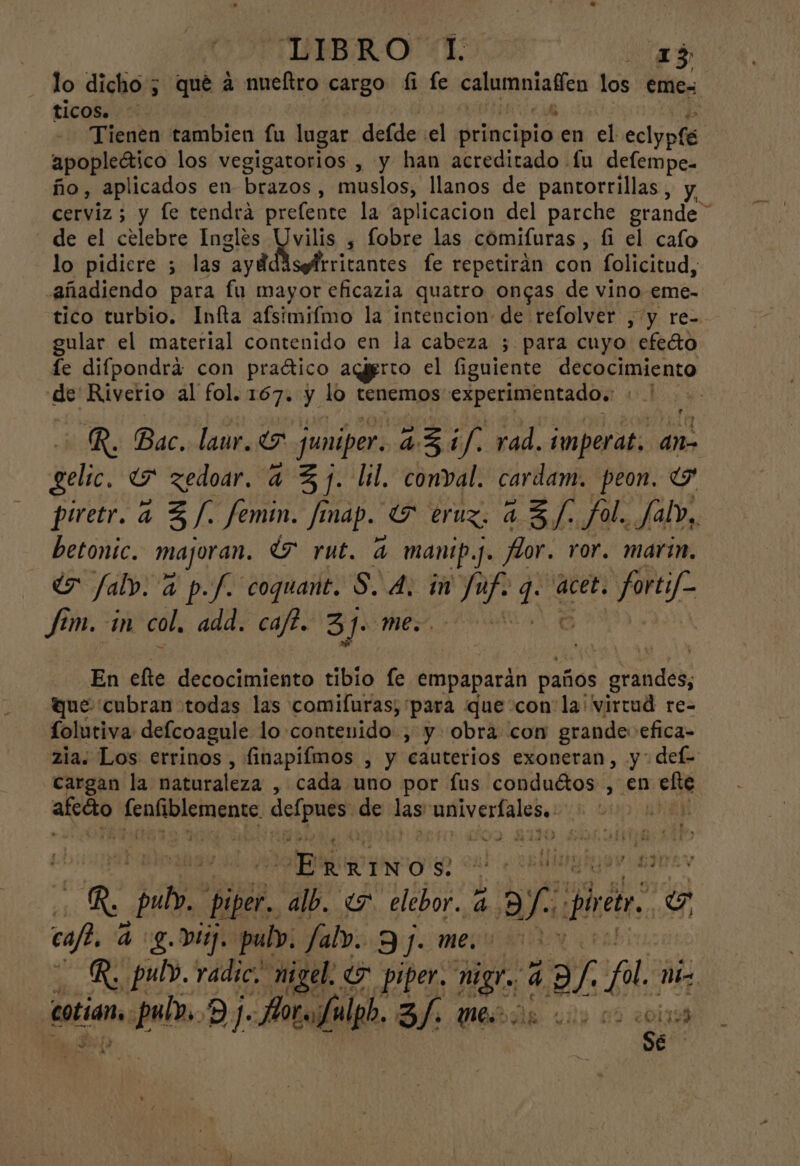 LIBRO I. 13
lo dicho; què à nueſtro cargo ſi ſe calumniaſſen los eme-
ticos.
Tienen tambien ſu lugar deſde el principio en el eclypſé
apoplectico los vegigatorios, y han acreditado ſu deſempe-
ño, aplicados en brazos, muslos, llanos de pantorrillas, y
cerviz; y ſe tendrà preſente la aplicacion del parche grande
de el cèlebre Inglès Uvilis, ſobre las comiſuras, ſi el caſo
lo pidiere; las irritantes ſe repetiràn con ſolicitud,
añadiendo para ſu mayor eficazia quatro onças de vino eme-
tico turbio. Inſta aſsimiſmo la intencion de reſolver, y re-
gular el material contenido en la cabeza; para cuyo efecto
ſe diſpondrà con practico acierto el ſiguiente decocimiento
de Riverio al fol. 167. y lo tenemos experimentado.
℞. Bac. laur. & juniper. ā ℥ iſ. rad. imperat. an-
gelic. & zedoar. ā ℥ j. lil. conval. cardam. peon. &
piretr. ā ℥ ſ. ſemin. ſinap. & eruz. ā ℥ ſ. fol. ſalv.
betonic. majoran. & rut. ā manip. j. flor. ror. marin.
& ſalv. ā p. ſ. coquant. S. A. in ſuf. q. acet. fortiſ-
ſim. in col. add. caſt. ʒ j. me.
En eſte decocimiento tibio ſe empaparán paños grandes,
que cubran todas las comiſuras, para que con la virtud re-
ſolutiva deſcoagule lo contenido, y obra con grande efica-
zia. Los errinos, ſinapiſmos, y cauterios exoneran, y deſ-
cargan la naturaleza, cada uno por ſus conductos, en eſte
afecto ſenſiblemente deſpues de las univerſales.
ERRINOS.
℞. pulv. piper. alb. & elebor. ā ℈ ſ. piretr. &
caſt. ā g. viij. pulv. ſalv. ℈ j. me.
℞. pulv. radic. nigel. & piper. nigr. ā ℈ ſ. fol. ni-
cotian. pulv. ℈ j. flor. ſulph. ʒ ſ. me.
Sé